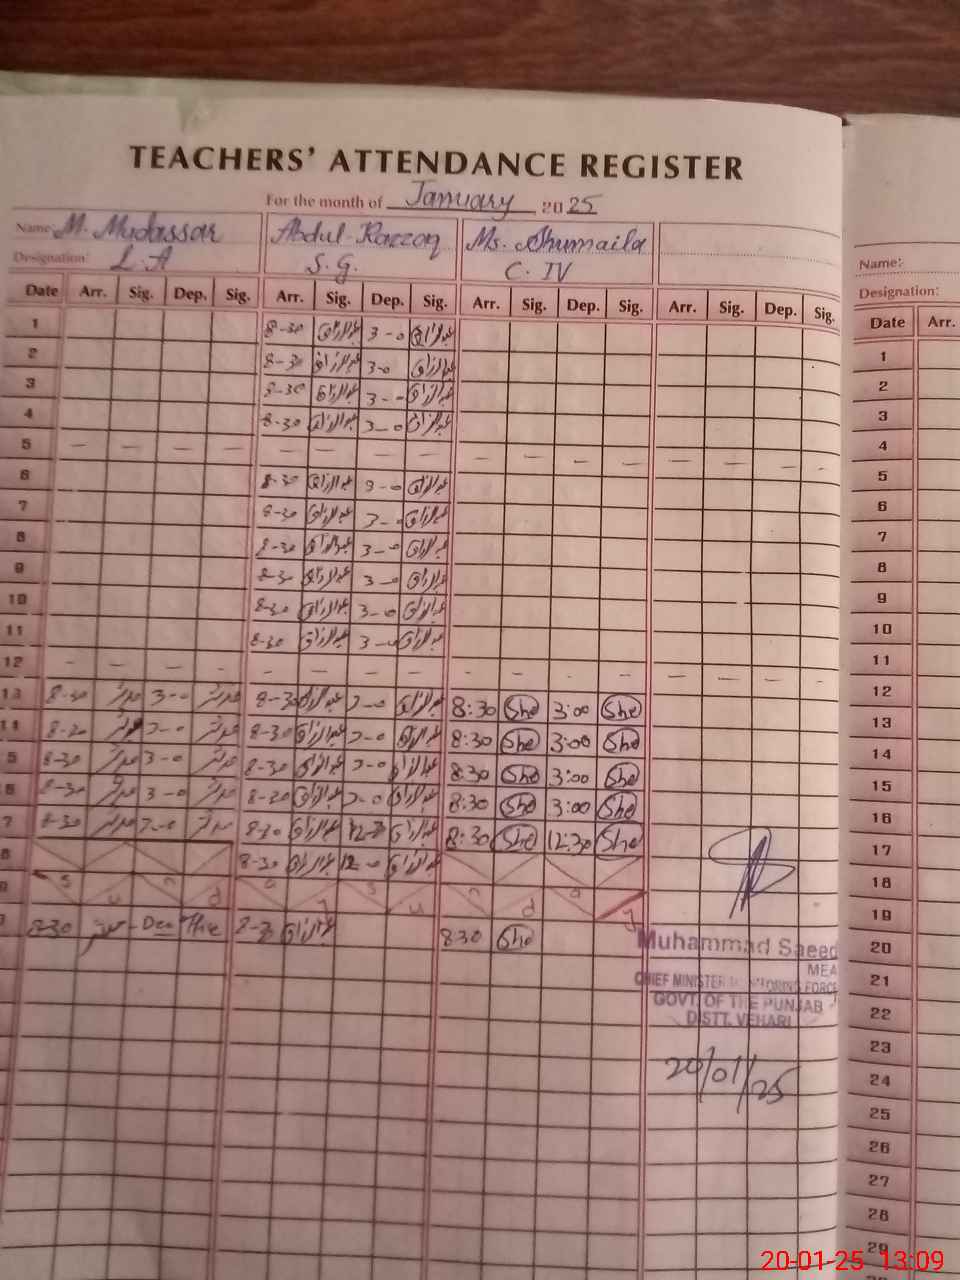 TEACHERS' ATTENDANCE REGISTER
For the month of January 2025
Name: M. Mudassar Abdul Razzaq Ms. Shumaila
Designation: L.A S.G. C. IV
Date Arr. Sig. Dep. Sig. Arr. Sig. Dep. Sig. Arr. Sig. Dep. Sig. Arr. Sig. Dep. Sig.
1 8-30 عبدالرزاق 3-0 عبدالرزاق
2 8-30 عبدالرزاق 3-0 عبدالرزاق
3 8-30 عبدالرزاق 3-0 عبدالرزاق
4 8-30 عبدالرزاق 3-0 عبدالرزاق
5 — — — — — — — — — — — — — — — —
6 8-30 عبدالرزاق 3-0 عبدالرزاق
7 8-30 عبدالرزاق 3-0 عبدالرزاق
8 8-30 عبدالرزاق 3-0 عبدالرزاق
9 8-30 عبدالرزاق 3-0 عبدالرزاق
10 8-30 عبدالرزاق 3-0 عبدالرزاق
11 8-30 عبدالرزاق 3-0 عبدالرزاق
12 — — — — — — — — — — — — — — — —
13 8-30 مدثر 3-0 مدثر 8-30 عبدالرزاق 3-0 عبدالرزاق 8:30 She 3:00 She
14 8-30 مدثر 3-0 مدثر 8-30 عبدالرزاق 3-0 عبدالرزاق 8:30 She 3:00 She
5 8-30 مدثر 3-0 مدثر 8-30 عبدالرزاق 3-0 عبدالرزاق 8:30 She 3:00 She
6 8-30 مدثر 3-0 مدثر 8-30 عبدالرزاق 3-0 عبدالرزاق 8:30 She 3:00 She
7 8-30 مدثر 3-0 مدثر 8-30 عبدالرزاق عبدالرزاق 8:30 She 12:30 She
8 8-30 عبدالرزاق 12-0 عبدالرزاق
9 S u n d a y S u n d a y
8-30 عبدالرزاق 8:30 She
Muhammad Saeed
MEA
CHIEF MINISTER MONITORING FORCE
GOVT. OF THE PUNJAB
DISTT. VEHARI
20/01/25
Name:
Designation:
Date Arr.
1
2
3
4
5
6
7
8
9
10
11
12
13
14
15
16
17
18
19
20
21
22
23
24
25
26
27
28
29
20-01-25 13:09